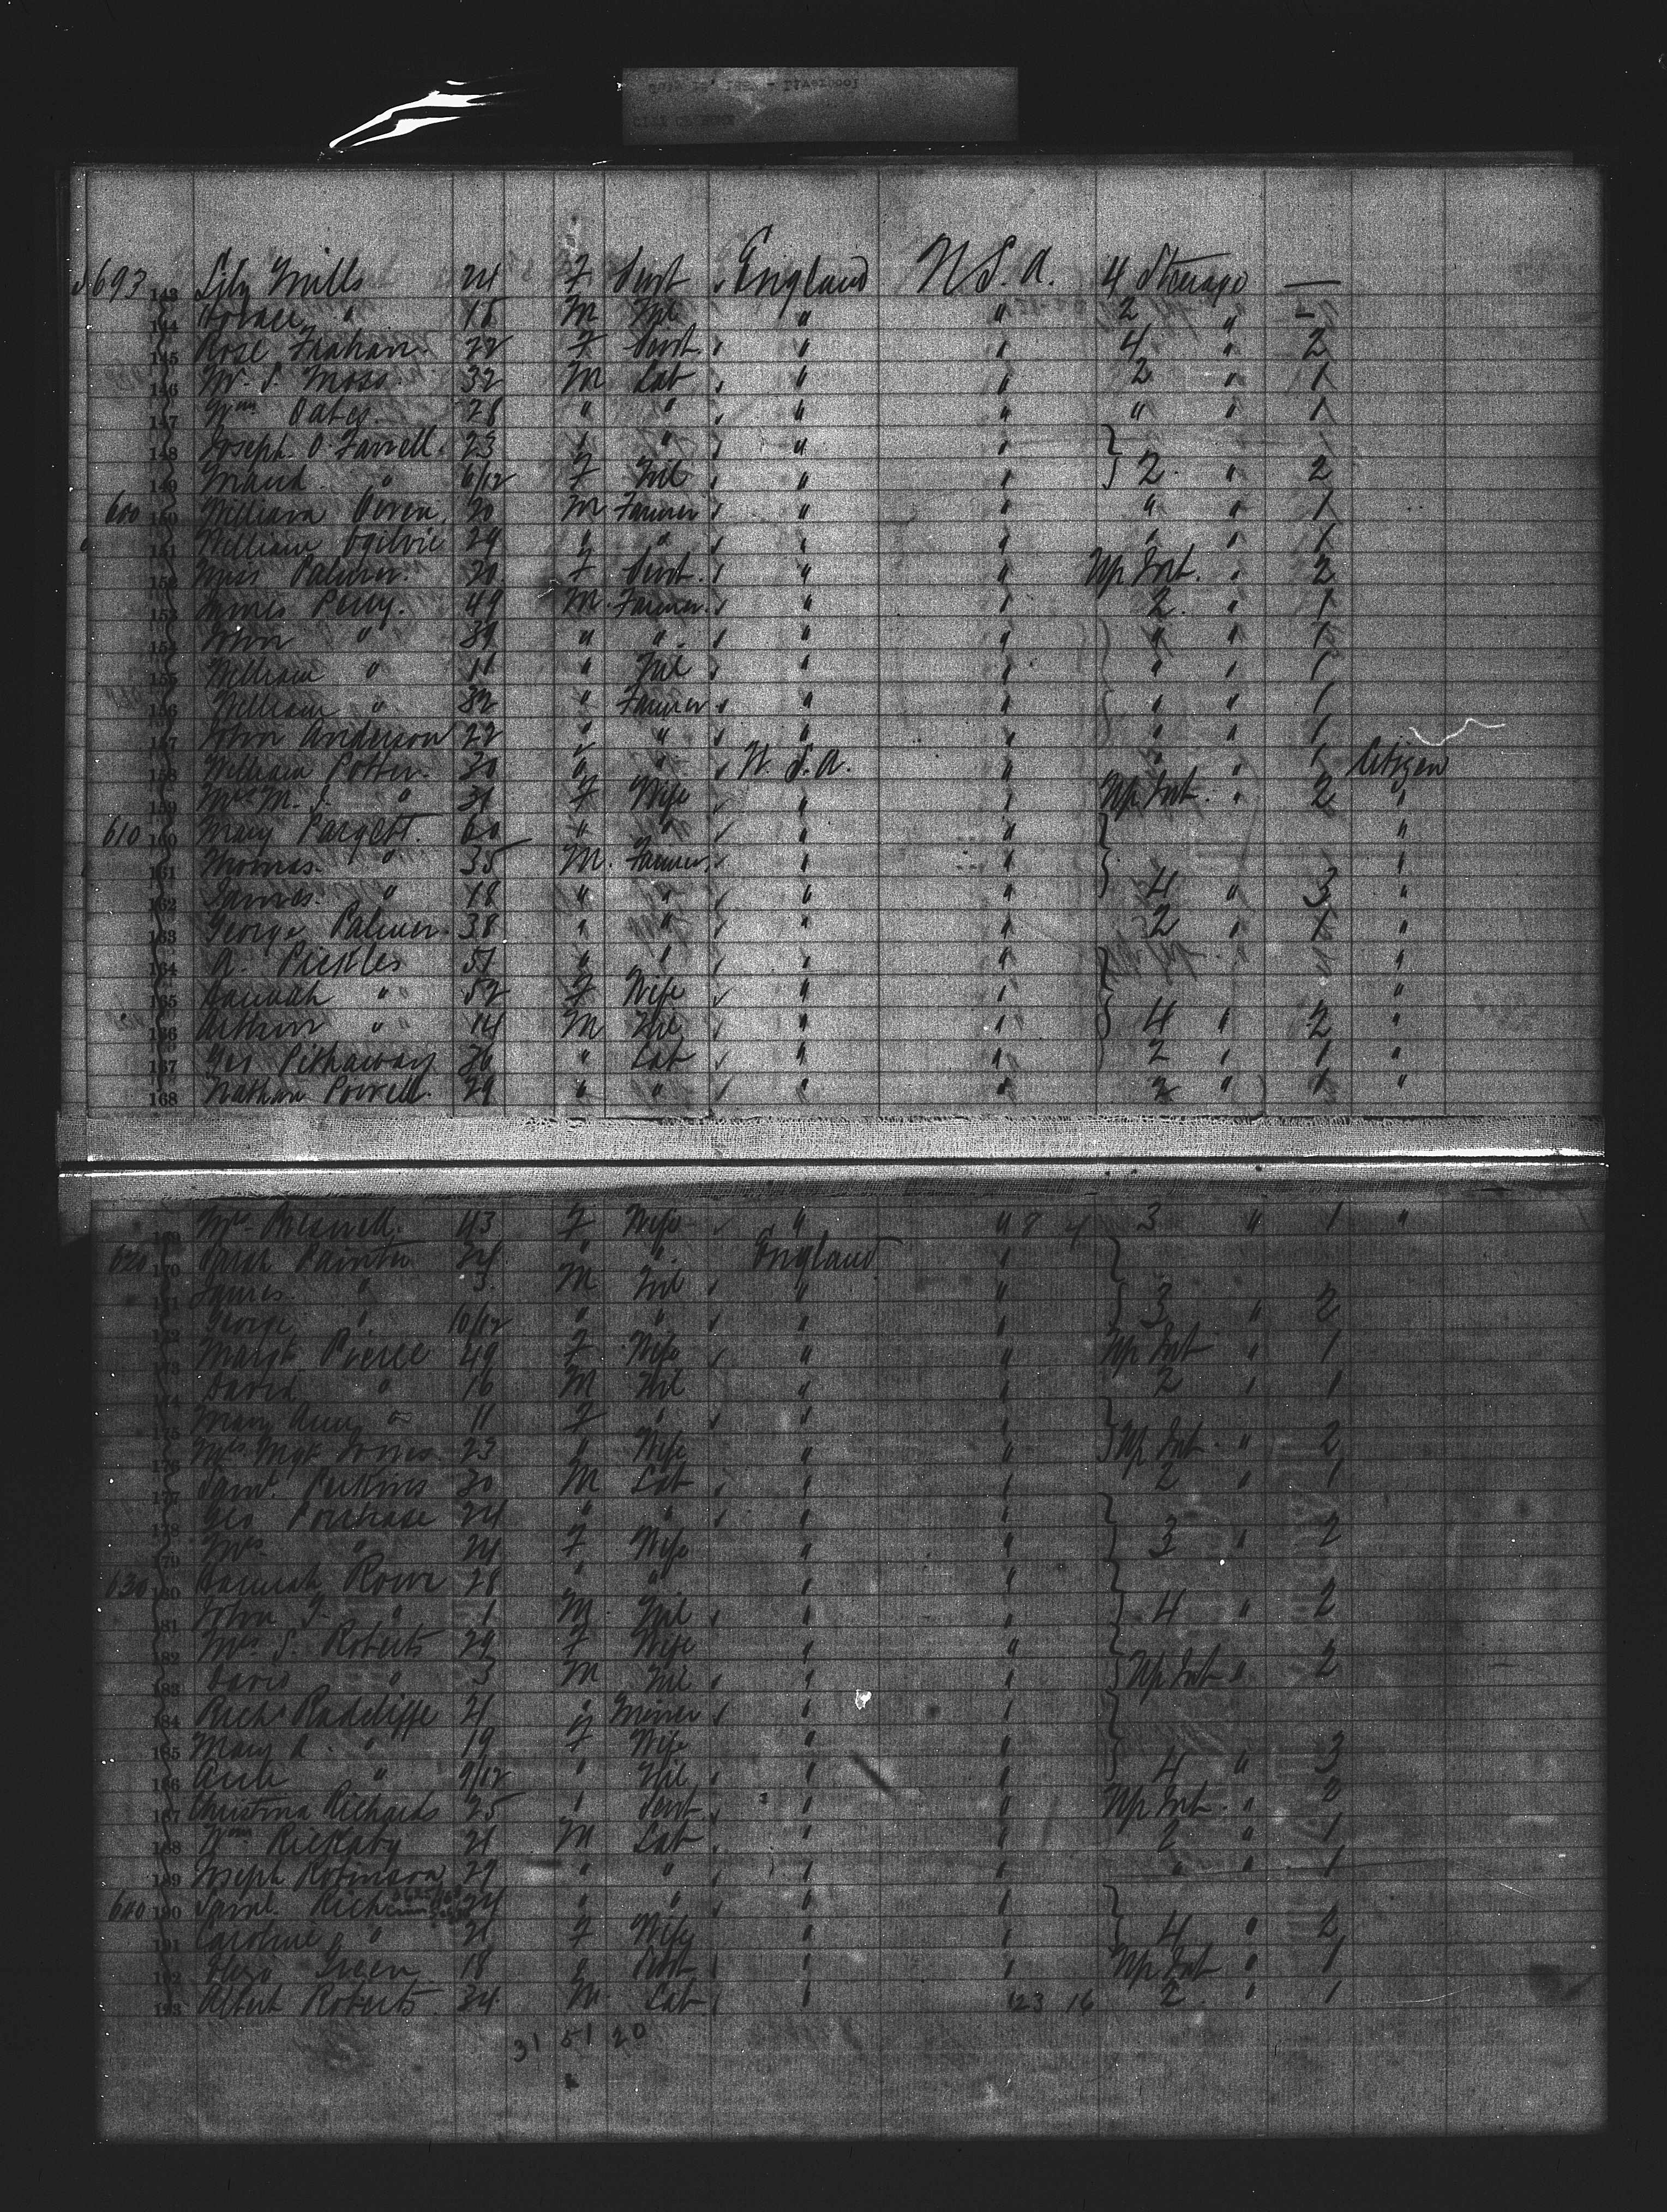 - Liverpool
693 143 Lily Mills 24 F Servt England U.S.A. 4 Steerage —
144 Horace " 15 M Nil " " 2 " -
145 Rose 22 F Servt. " " 4 " 2
146 W. S. Moss. 32 M Lab " " 2 " 1
147 Wm Oates 28 " " " " " " 1
148 Joseph O'Farrell. 23 " " " "
149 Maud " 6/12 F Nil " " 2 " 2
600 150 William 20 M Farmer " " " " 1
151 William Ogilvie 29 " " " " " " 1
152 Miss Palmer. 20 F Servt. " " Up Int. " 2
153 James Perry. 49 M. Farmer. " " 2. " 1
154 John " 39 " " " " " " 1
155 William " 11 " Nil " " " " 1
156 William " 32 " Farmer " " " " 1
157 John Anderson 22 " " " " " " 1
158 William Potter. 30 " " U.S.A. " " " 1 Citizen
159 Mrs M. S. " 31 F Wife " " Up Int. " 2 "
610 160 Mary Pargett. 60 " " " " "
161 Thomas. " 35 M. Farmer. " " "
162 James. " 18 " " " " 4 " 3 "
163 George Palmer. 38 " " " " 2 " 1 "
164 A. Pickles 51 " " " " "
165 Hannah " 52 F Wife " " "
166 Arthur " 14 M Nil " " 4 " 2 "
167 Geo Pithaway 36 " Lab " " 2 " 1 "
168 Nathan Powell. 29 " " " " 2 " 1 "
169 Mrs. 43 F Wife " " 8 4 3 " 1 "
620 170 Sarah Painter " " England "
171 James. " 3. M Nil " "
172 George " 10/12 " " " " 3 " 2
173 Margt Pierce 49 F Wife " " Up Int " 1
174 David " 16 M Nil " " 2 " 1
175 Mary Ann " 11 F " " "
176 Mrs Mgt Jones. 23 " Wife " " Up Int. " 2
177 Saml. Perkins 30 M Lab " " 2 " 1
178 Geo Purchase 24 " " " "
179 Mrs. " 24 F Wife " " 3 " 2
630 180 Hannah Rowe 28 " " " "
181 John " 1 M. Nil " " 4 " 2
182 Mrs S. Roberts 29 F Wife " "
183 David " 3 M Nil " " Up Int " 2
184 Richd Radcliffe 21 " Miner " "
185 Mary A. " 19 F Wife " "
186 " 9/12 " Nil " " 4 " 3
187 Christina Richards 25 " Servt " " Up Int. " 2
188 Wm Rickaby 21 M Lab " " 2 " 1
189 Joseph Robinson 27 " " " " " " 1
640 190 Saml. Rich 24 " " " "
191 Caroline " 21 F Wife " " 4 " 2
192 Green 18 " Servt " " Up Int " 1
193 Albert Roberts. 34 M. Lab " 23 16 2. " 1
31 51 20